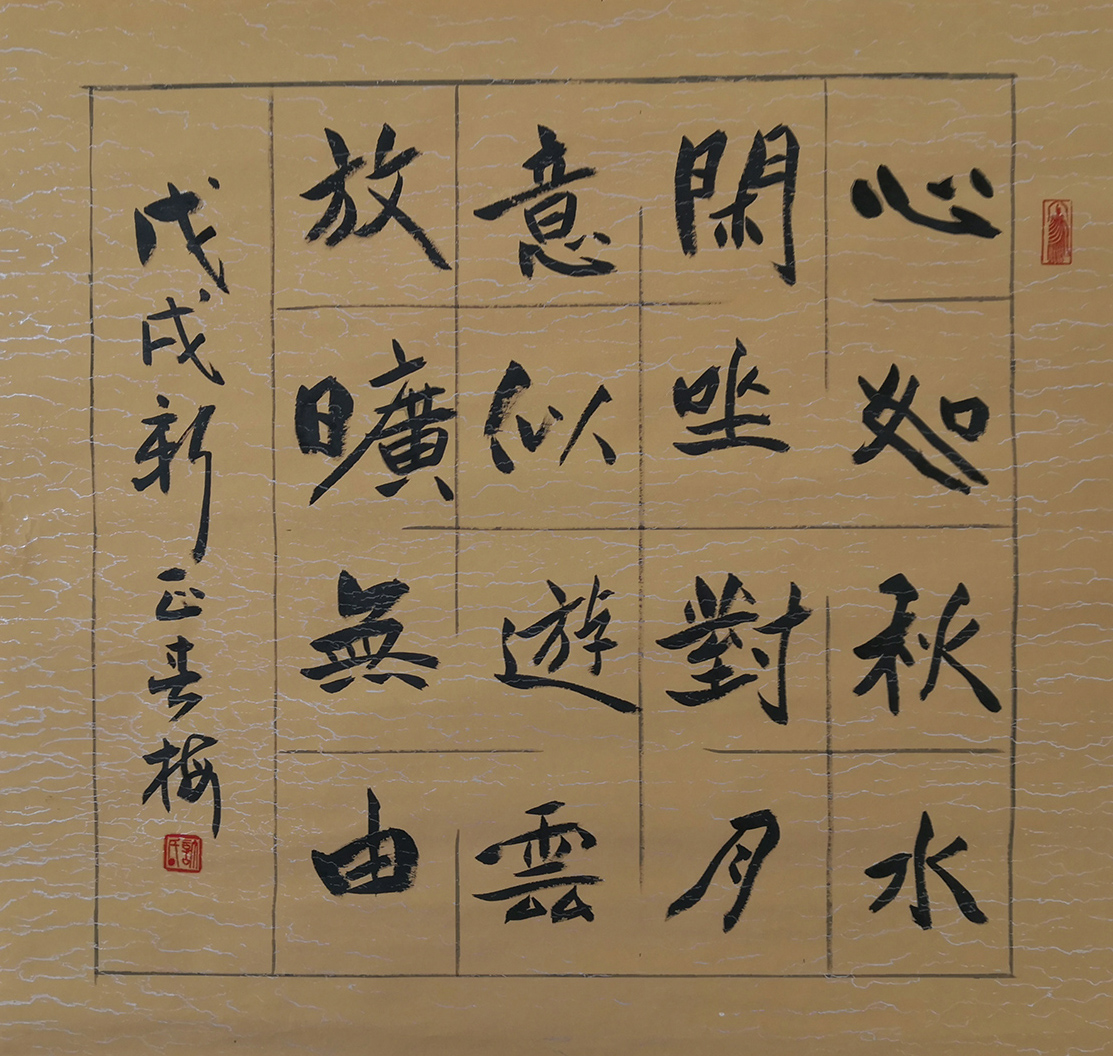 心如秋水
閑坐對月
意似遊雲
放曠無由
戊戌新正春梅